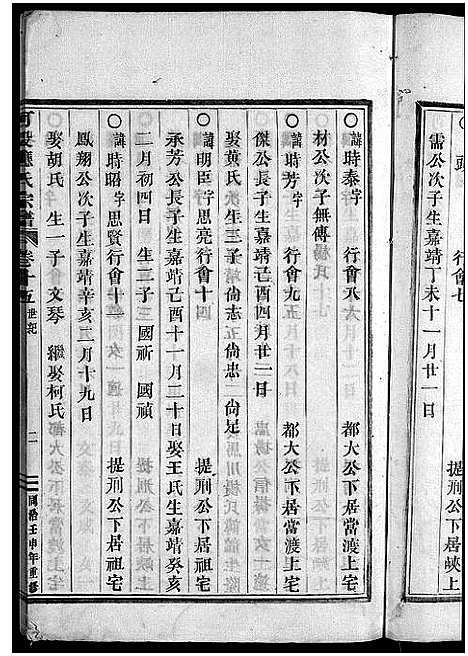 需公次子生嘉靖丁未十一月廿一日
提刑公下居峽上
○諱時泰字 行會八 都大公下居當渡上宅
材公次子無傳
○諱時芳字 行會九 都大公下居當渡上宅
傑公長子生嘉靖己酉四月廿二日
娶黃氏 生三子 尚志 尚忠 尚足
○諱明臣字思亮行會十四 提刑公下居祖宅
永芳公長子生嘉靖己酉十一月二十日娶王氏生嘉靖癸亥
二月初四日 生二子 國祈 國禎
○諱時昭字思賢行會十二 提刑公下居祖宅
鳳翔公次子生嘉靖辛亥二月十九日
娶胡氏 生一子 文琴 繼娶柯氏
氏宗譜 卷十五 世紀 二 同治壬申年重修